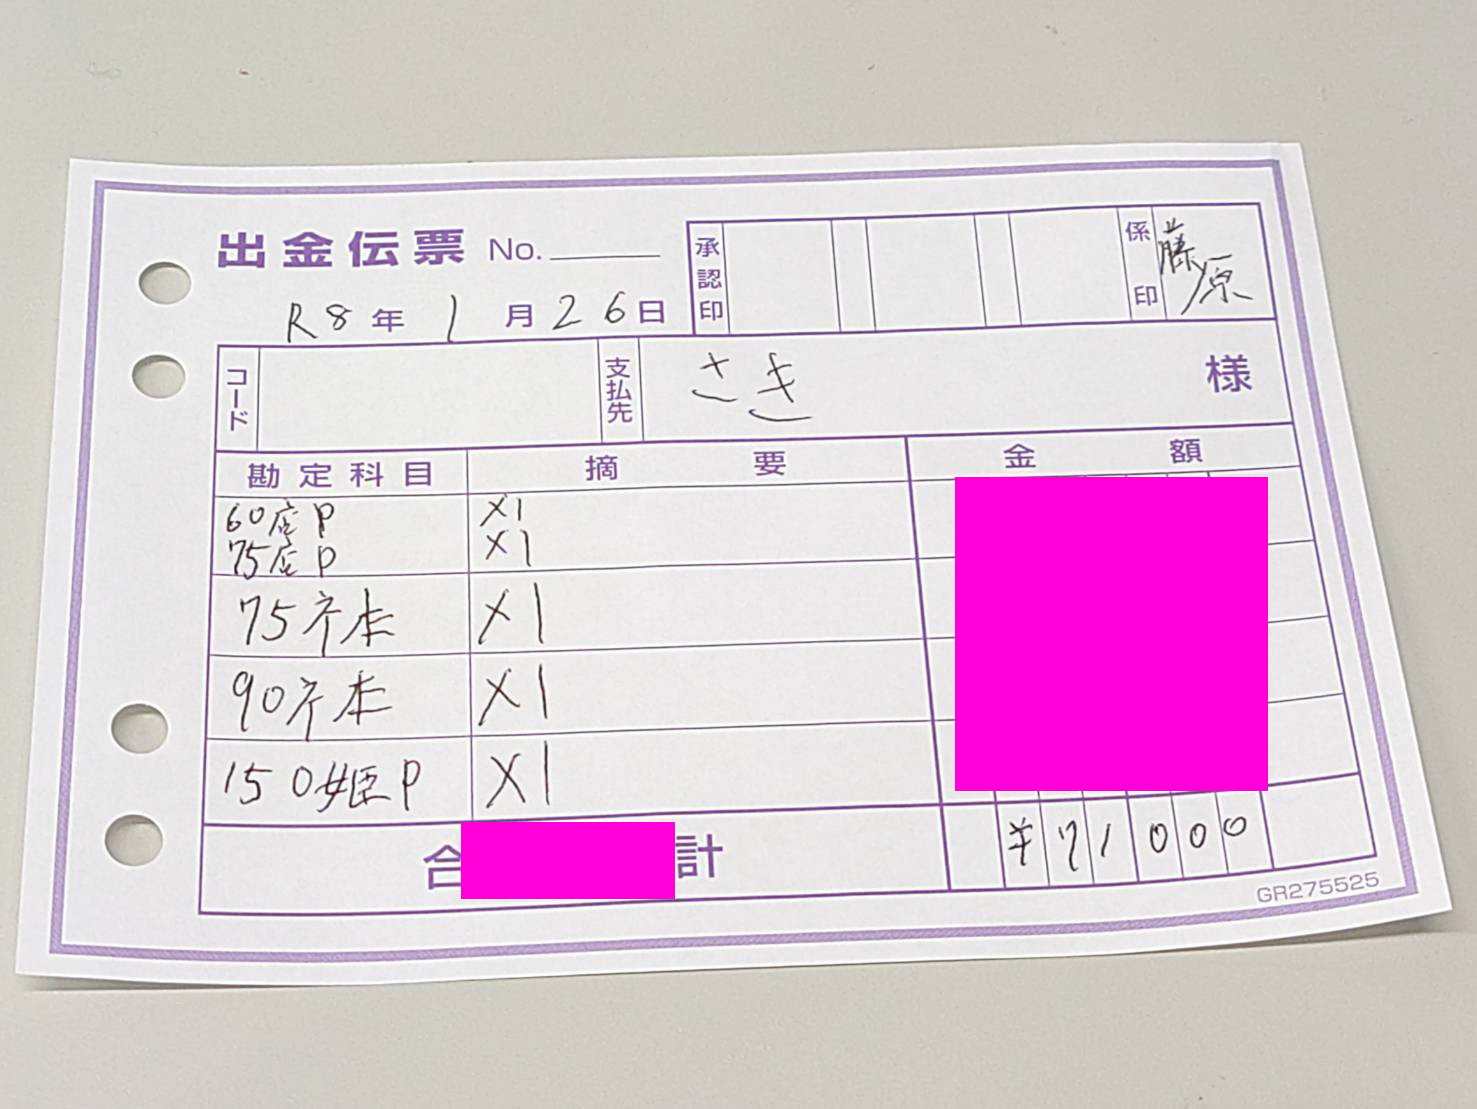 出金伝票 No.
R8年 1月26日
承認印
係印 藤原
コード
支払先 さき 様
勘定科目 摘要 金額
60店P X1
75店P X1
75ネ本 X1
90ネ本 X1
150姫P X1
合計 ¥71000
GR275525